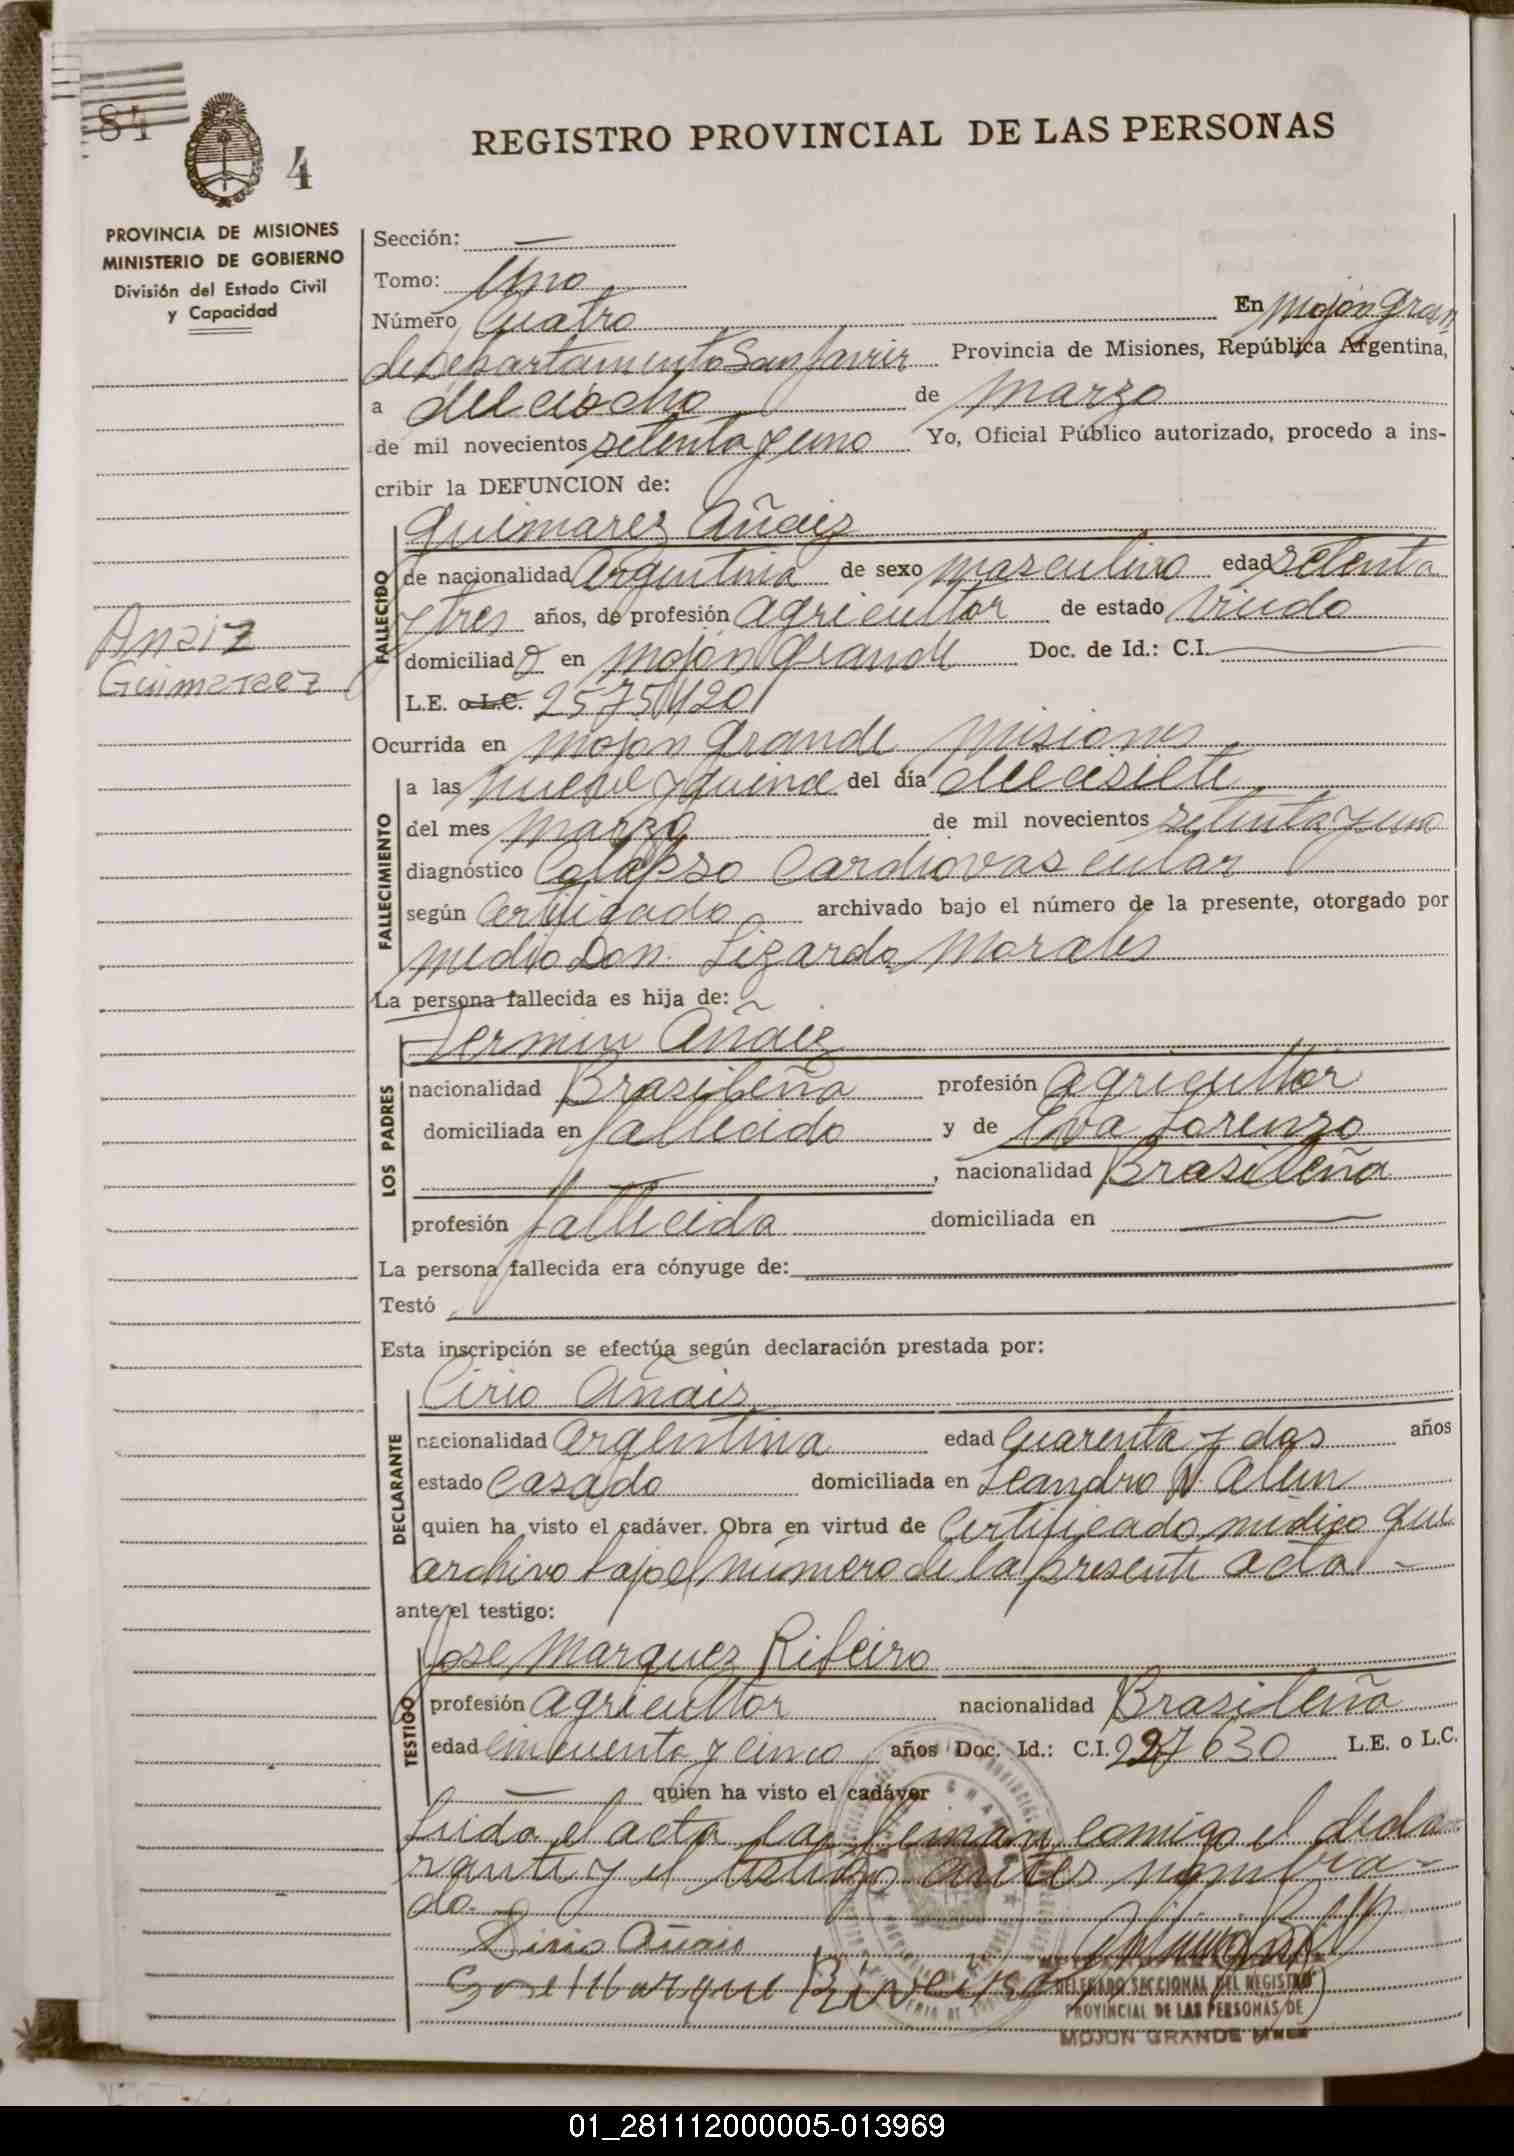 84
4
REGISTRO PROVINCIAL DE LAS PERSONAS
PROVINCIA DE MISIONES
MINISTERIO DE GOBIERNO
División del Estado Civil
y Capacidad
Anaiz
Guimaraez
Sección: —
Tomo: Uno
Número Cuatro En Mojón Gran
de Departamento San Javier Provincia de Misiones, República Argentina,
a dieciocho de Marzo
de mil novecientos setenta y uno Yo, Oficial Público autorizado, procedo a ins-
cribir la DEFUNCION de:
FALLECIDO
Guimarez Añaiz
de nacionalidad Argentina de sexo masculino edad setenta
y tres años, de profesión agricultor de estado Viudo
domiciliado en Mojón Grande Doc. de Id.: C.I.
L.E. o L.C. 2575420
Ocurrida en Mojón Grande Misiones
FALLECIMIENTO
a las nueve y quince del día diecisiete
del mes Marzo de mil novecientos setenta y uno
diagnóstico Colapso Cardiovascular
según Certificado archivado bajo el número de la presente, otorgado por
medio Don. Lizardo Morales
La persona fallecida es hija de:
LOS PADRES
Fermin Añaiz
nacionalidad Brasileña profesión agricultor
domiciliada en fallecido y de Eva Lorenzo
, nacionalidad Brasileña
profesión fallecida domiciliada en —
La persona fallecida era cónyuge de:
Testó
Esta inscripción se efectúa según declaración prestada por:
DECLARANTE
Cirio Añais
nacionalidad Argentina edad Cuarenta y dos años
estado Casado domiciliada en Leandro N. Alen
quien ha visto el cadáver. Obra en virtud de Certificado médico que
archivo bajo el número de la presente acta —
ante el testigo:
TESTIGO
Jose Marquez Ribeiro
profesión agricultor nacionalidad Brasileña
edad cincuenta y cinco años Doc. Id.: C.I. 227630 L.E. o L.C.
— quien ha visto el cadáver
Leida el acta la firman comigo el decla-
rante y el testigo antes nombra-
do. —
Sirio Añais
Jose Marques Riveiro
DELEGADO SECCIONAL DEL REGISTRO
PROVINCIAL DE LAS PERSONAS DE
MOJON GRANDE
01_281112000005-013969